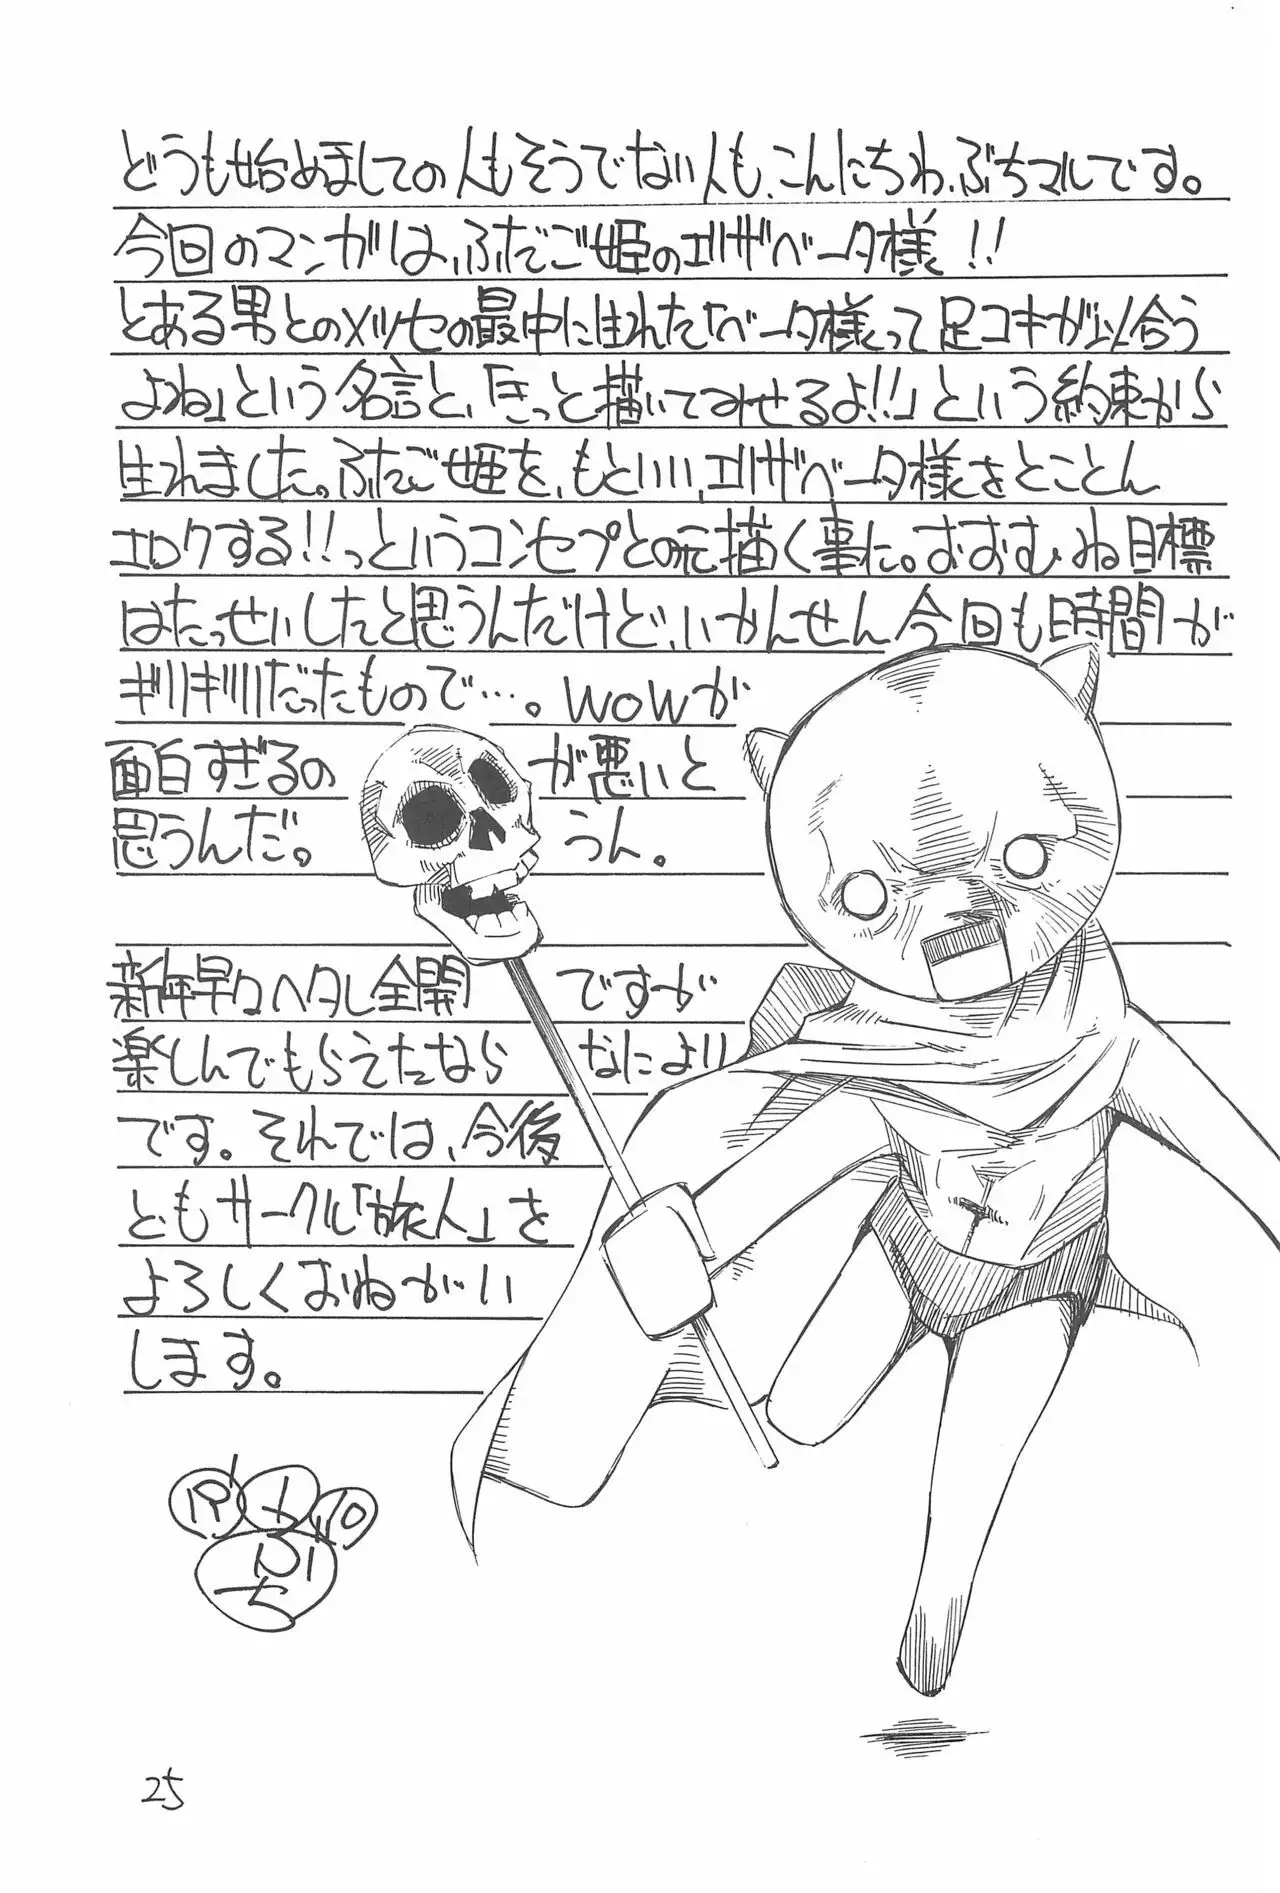 どうも始めましての人もそうでない人も、こんにちわ、ぶちマルです。
今回のマンガは、ふたご姫のエリザベータ様!!
とある男とのメッセの最中に生れた「ベータ様って足コキが似合う
よね」という名言と、「きっと描いてみせるよ!!」という約束から
生れました。ふたご姫を、もといい、エリザベータ様をとことん
エロクする!!っというコンセプとの元描く事に。おおむね目標
はたっせいしたと思うんだけど、いかんせん今回も時間が
ギリギリだったもので…。WOWが
面白すぎるのが悪いと
思うんだ。うん。
新年早々ヘタレ全開ですが
楽しんでもらえたなら なにより
です。それでは、今後
ともサークル「旅人」を
よろしくおねがい
します。
ぶち
25